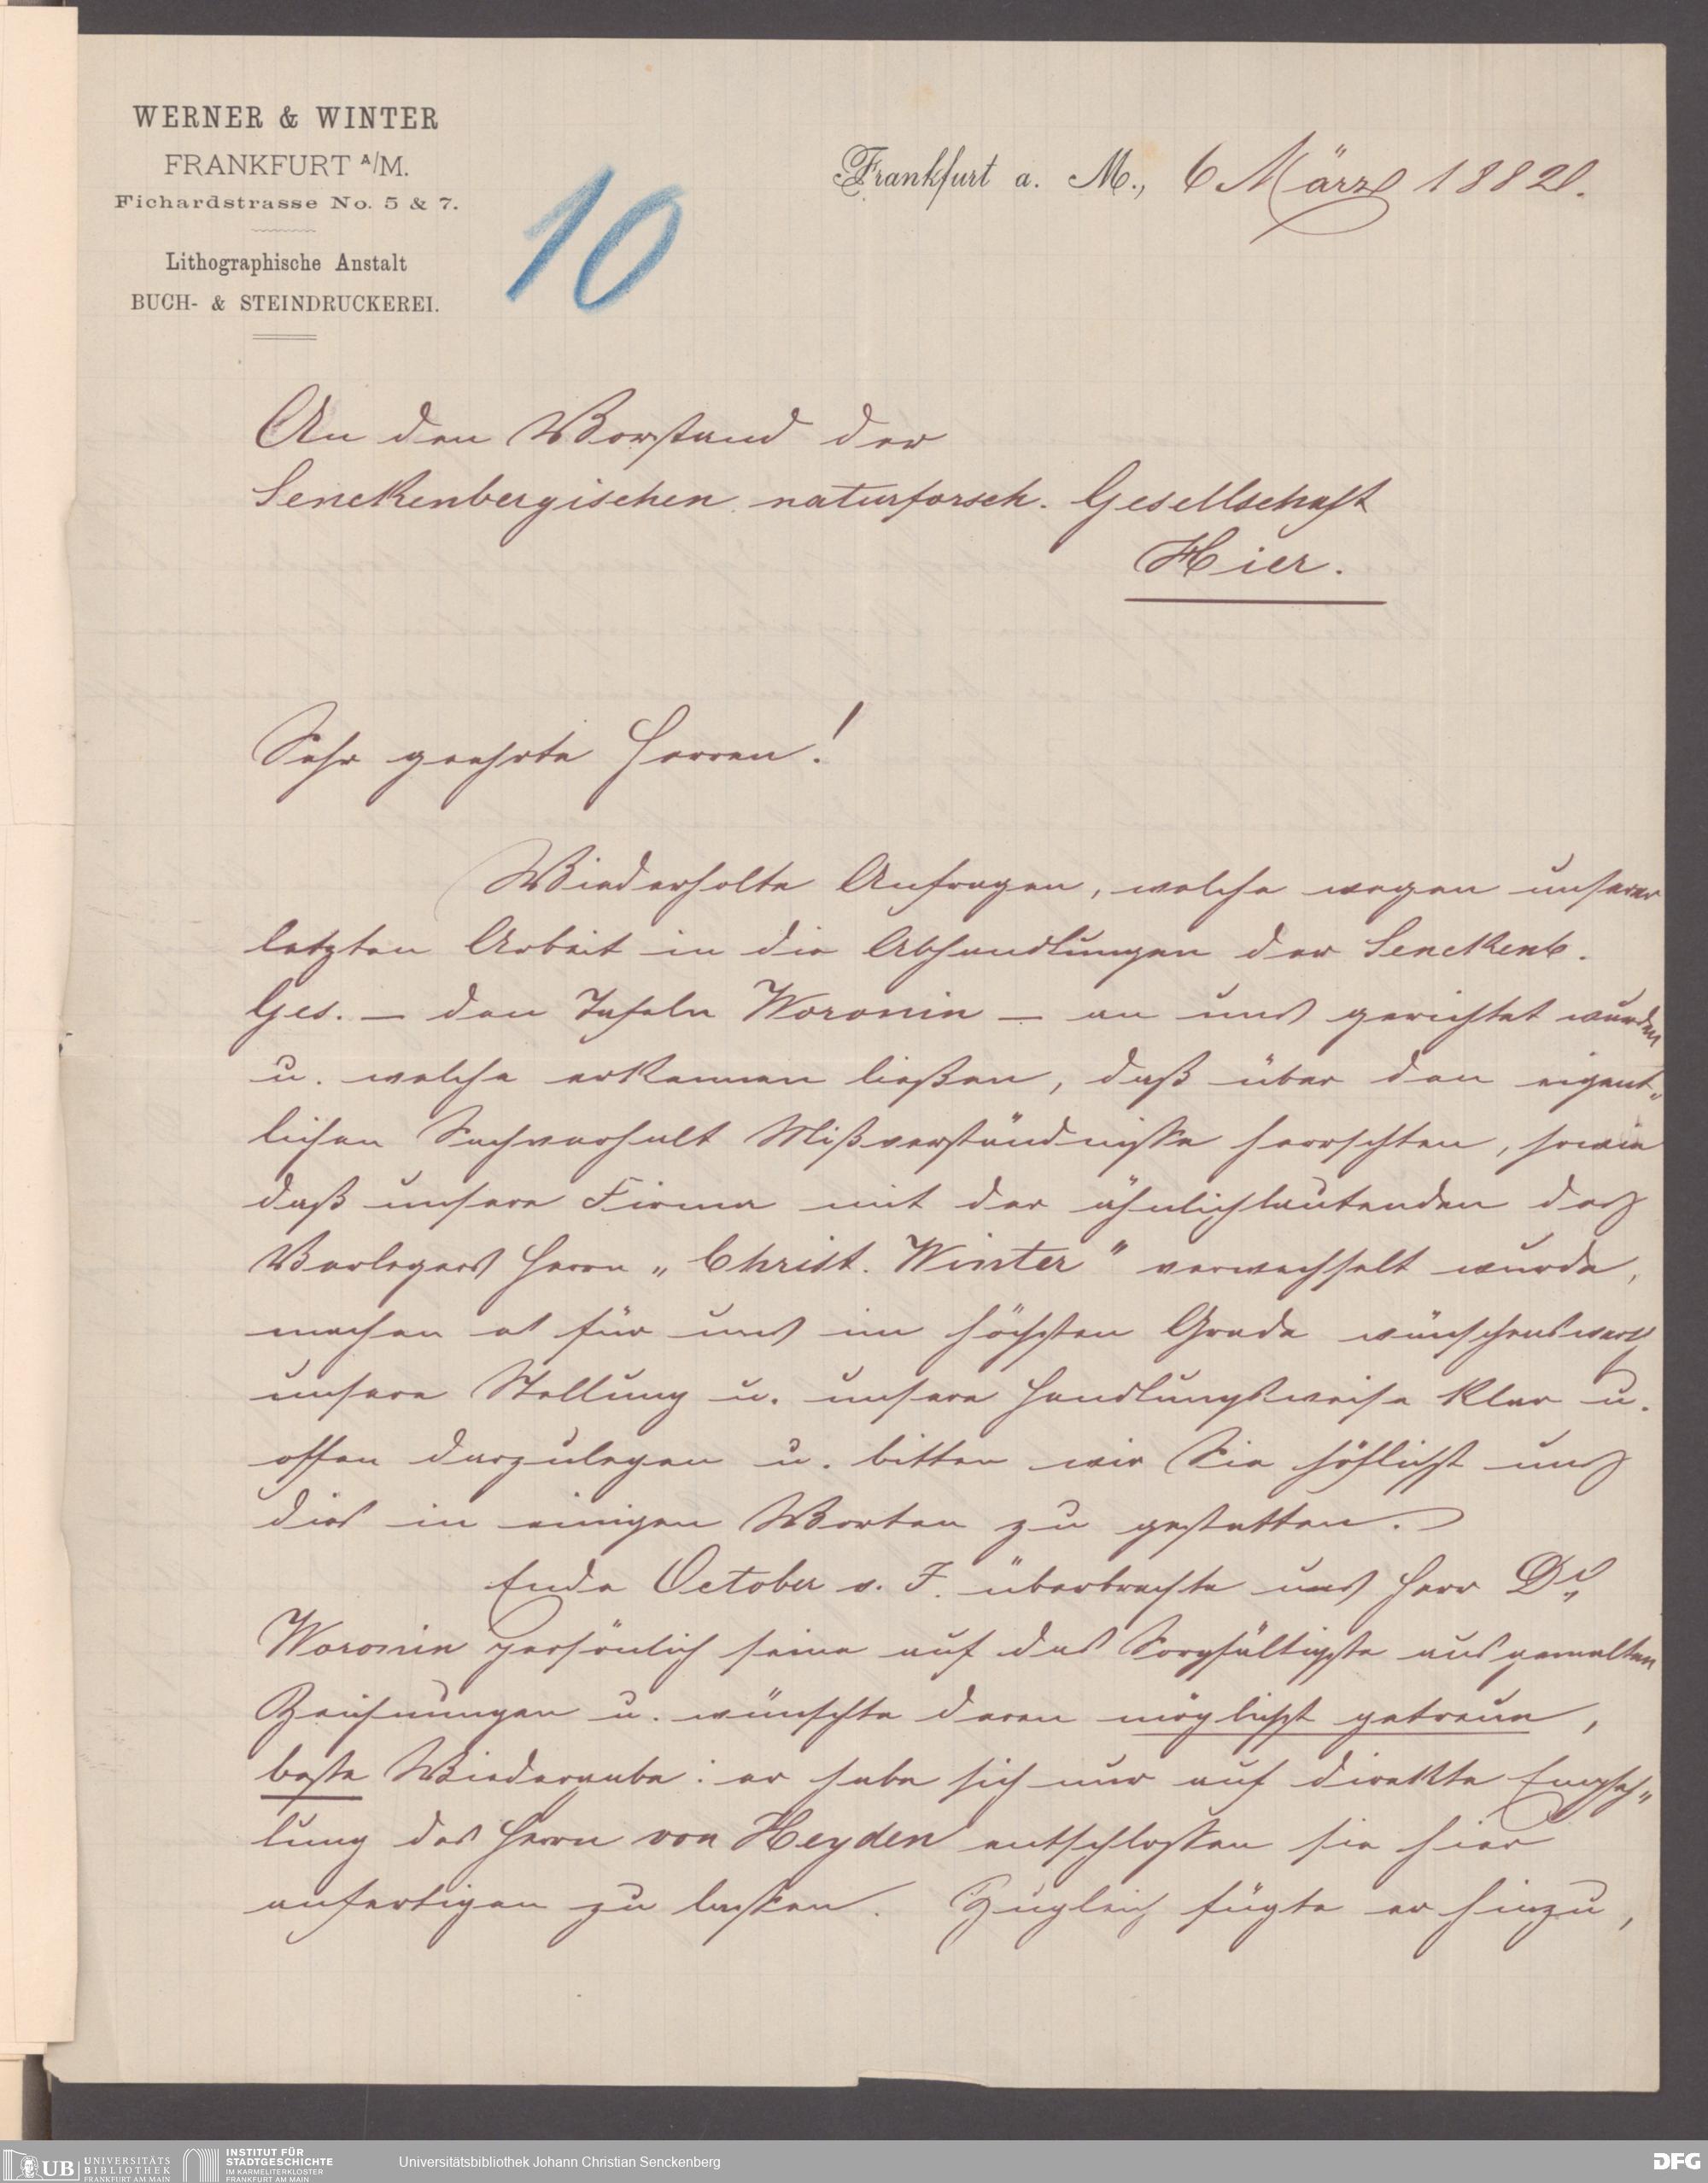 WERNER & WINTER
FRANKFURT A/M.
Fichardstrasse No. 5 & 7.
Lithographische Anstalt
BUCH- & STEINDRUCKEREI.
10
Frankfurt a. M., 6 März 1882.
An den Vorstand der
Senckenbergischen naturforsch. Gesellschaft
Hier.
Sehr geehrte Herren!
Wiederholte Anfragen, welche wegen unserer
letzten Arbeit in die Abhandlungen der Senckenb.
Ges. — den Tafeln Woronin — an uns gerichtet wurden
u. welche erkennen ließen, daß über den eigent„
lichen Sachverhalt Mißverständnisse herrschten, sowie
daß unsere Firma mit der ähnlichlautenden des
Verlegers Herrn „Christ. Winter" verwechselt wurde,
machen es für uns im höchsten Grade wünschenswert
unsere Stellung u. unsere Handlungsweise klar u.
offen darzulegen u. bitten wir Sie höflichst uns
dies in einigen Worten zu gestatten.
Ende October v. J. überbrachte uns Herr Dr.
Woronin persönlich seine auf das Sorgfältigste ausgemalten
Zeichnungen u. wünschte deren möglichst getreue,
beste Wiedergabe: er habe sich nur auf direkte Empfeh„
lung des Herrn von Heyden entschlossen sie hier
anfertigen zu lassen. Zugleich fügte er hinzu,
UB UNIVERSITÄTS
BIBLIOTHEK
FRANKFURT AM MAIN
INSTITUT FÜR
STADTGESCHICHTE
IM KARMELITERKLOSTER
FRANKFURT AM MAIN
Universitätsbibliothek Johann Christian Senckenberg
DFG